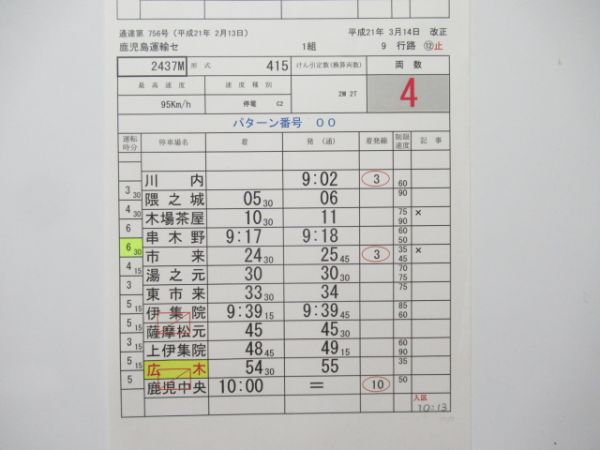 通達第 756号(平成21年 2月13日) 平成21年 3月14日 改正
鹿児島運輸セ 1組 9 行路 ⑫止
2437M 形式 415 けん引定数(換算両数) 両数
最高速度 速度種別 2M 2T 4
95Km/h 停電 C2
パターン番号 00
運転時分 停車場名 着 発(通) 着発線 制限速度 記事
川内 9:02 3 60
3 30 隈之城 05 30 06 90
4 30 木場茶屋 10 30 11 75 90 ×
6 串木野 9:17 9:18 60 50
6 30 市来 24 30 25 45 3 35 45 ×
4 15 湯之元 30 30 30 70 75
3 東市来 33 30 34 75
5 15 伊集院 9:39 15 9:39 45 85 60
5 15 薩摩松元 45 45 30
3 15 上伊集院 48 45 49 15 60 90
5 15 広木 54 30 55 35
5 鹿児中央 10:00 = 10 50
入区
10:13